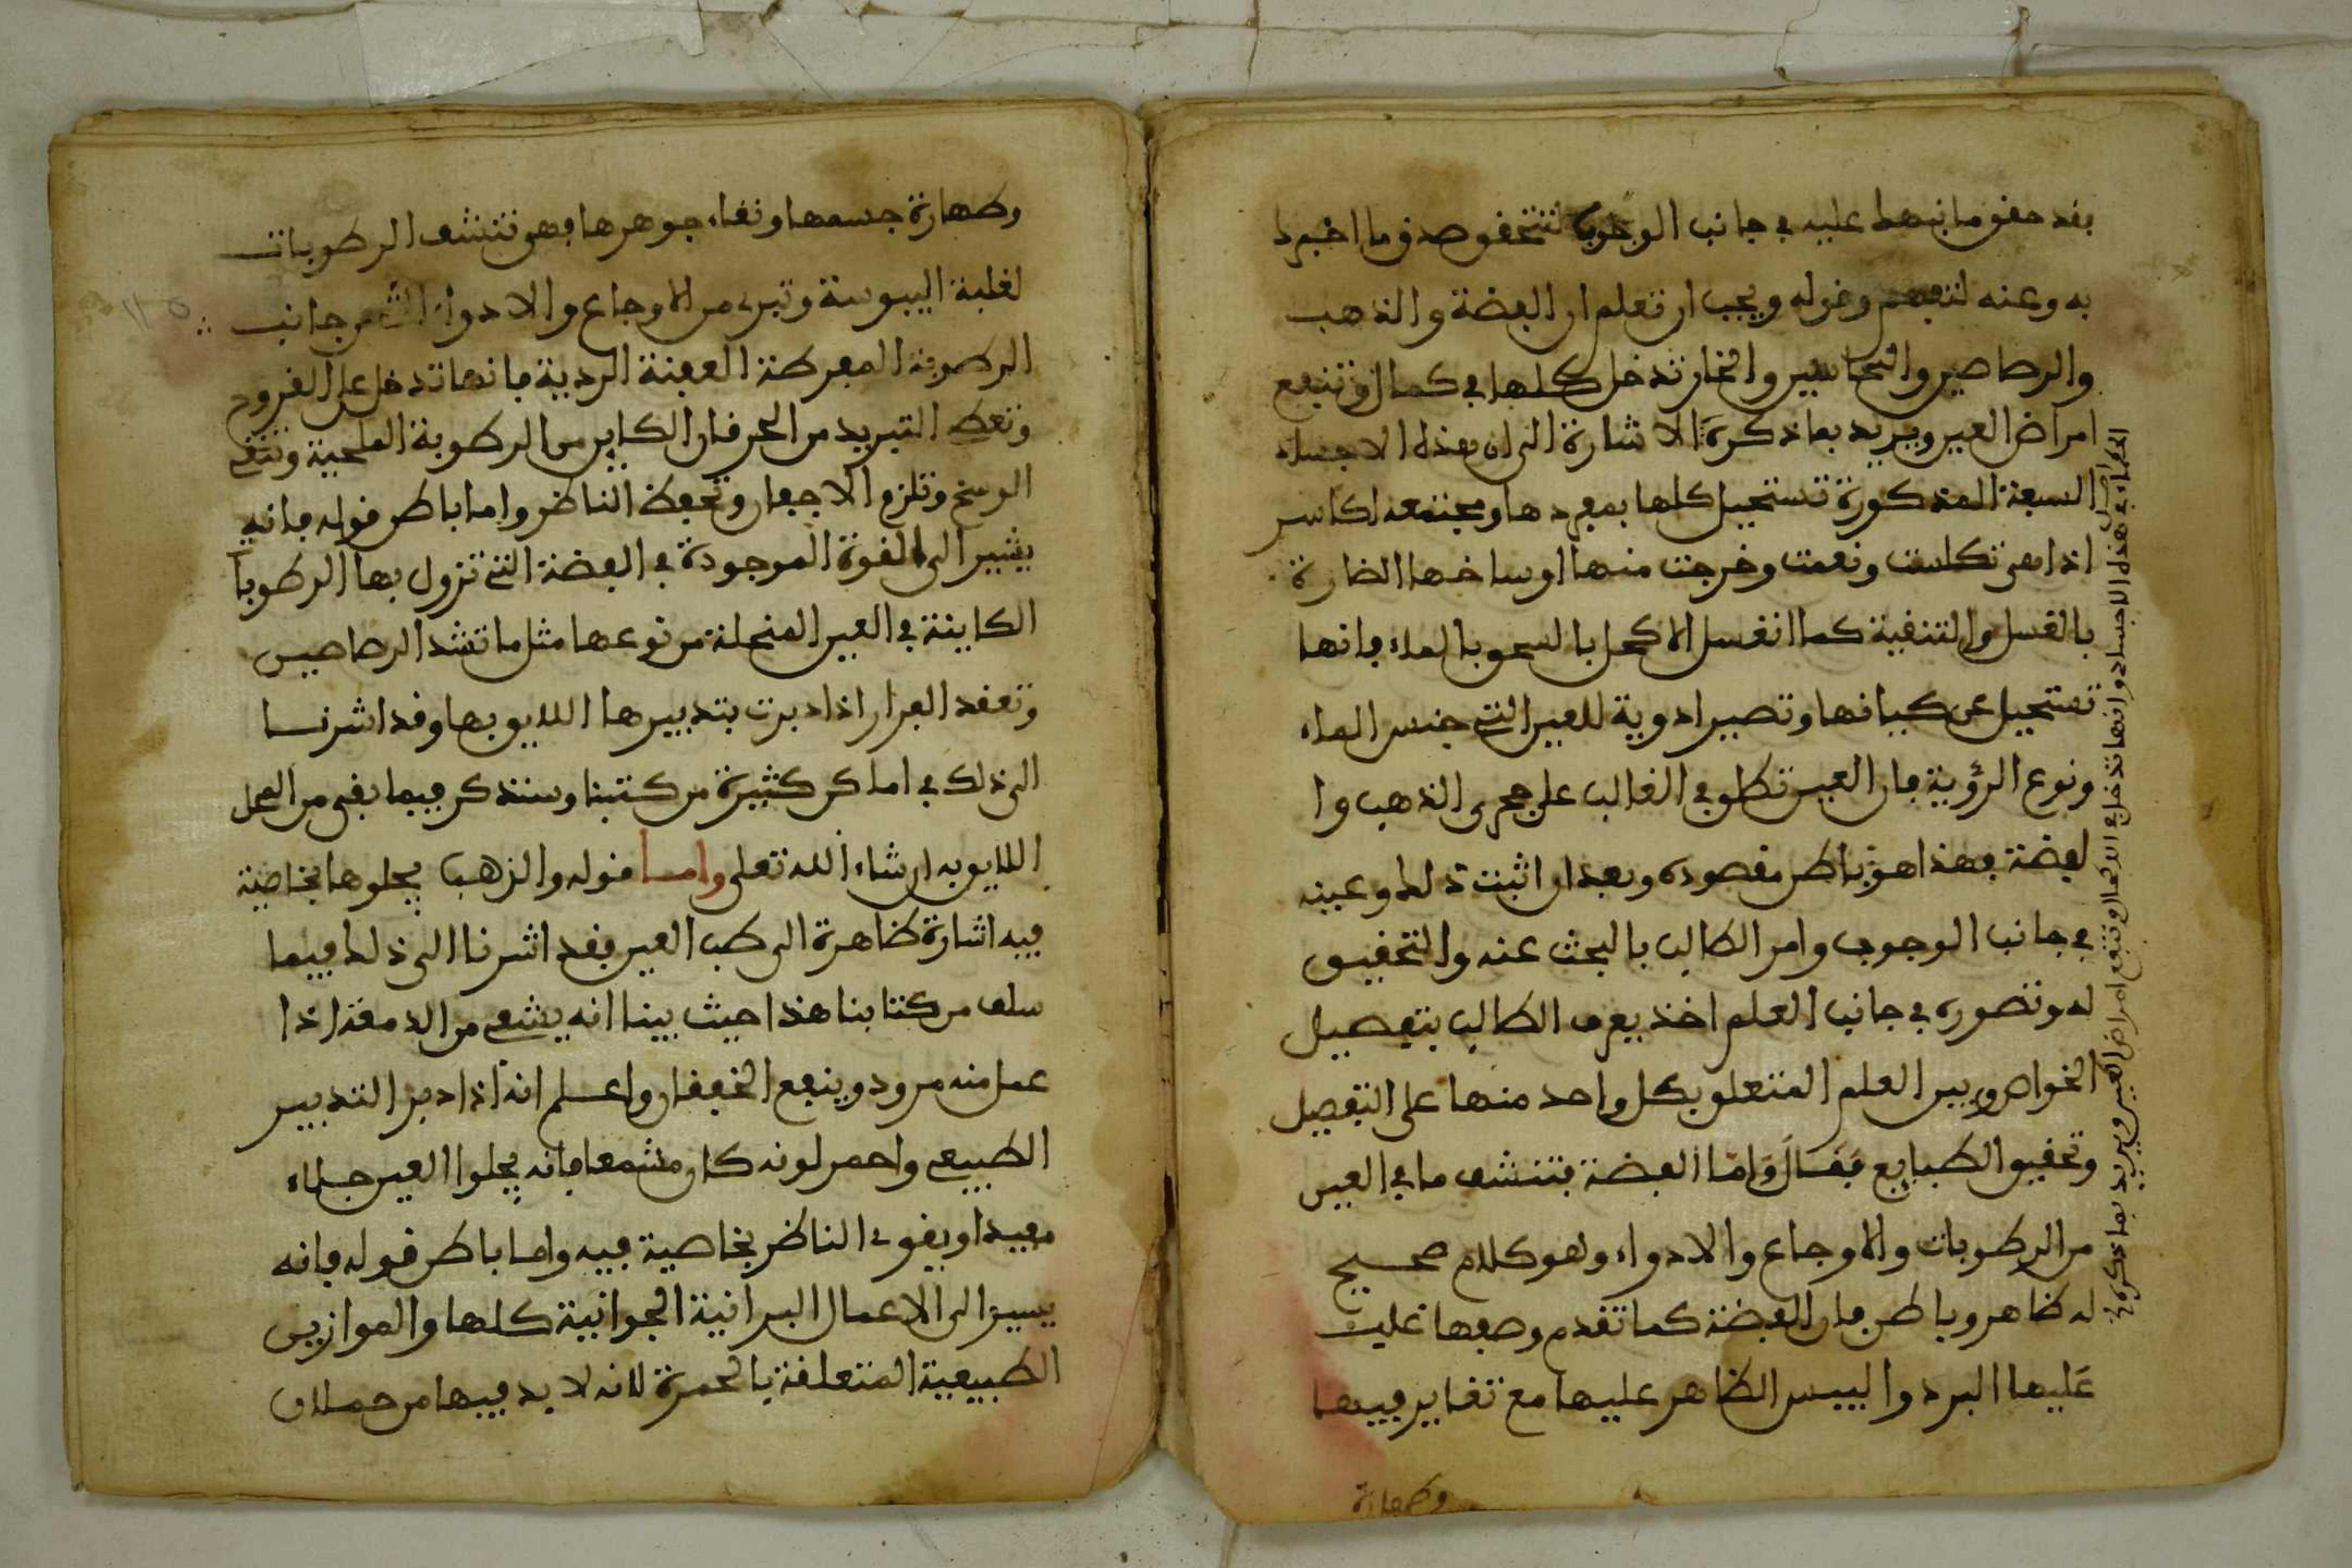 فقد حقق ما نبهك عليه في جانب الوجوب لتتحقق صدق ما اخبرك
به وعنه لتفهم وقوله ويجب ان تعلم ان الفضة والذهب
والرصاصين والنحاسين والخار تدخل كلها في كمال وتنفع
امراض العين ويريد بما ذكره الاشارة الى ان هذه الاجساد
السبعة المذكورة تستحيل كلها بمفردها ومجتمعه اكاسر
اذا هي تكلست ونعمت وخرجت منها اوساخها الضارة
بالغسل والتنقية كما انغسل الاكحل بالسحق بالماء فانها
تستحيل عن كيانها وتصير ادوية للعين التي جنس الماء
ونوع الرؤية فان العين تطلق في الغالب على حجري الذهب وا
لفضة فهذا هو باطن مقصوده وبعد ان اثبت ذلك وعينه
في جانب الوجوب وامر الطالب بالبحث عنه والتحقيق
له وتصوره في جانب العلم اخذ يعرف الطالب بتفصيل
الخواص وبين العلم المتعلق بكل واحد منها على التفصيل
وتحقيق الطبايع فقال واما الفضة فتنشف ما في العين
من الرطوبات والاوجاع والادواء وهو كلام صحيح
له ظاهر وباطن فان الفضة كما تقدم وصفها غلبت
عليها البرد واليبس الظاهر عليها مع تغاير فيها
وطهارة
الحكماء في هذه الاجساد وانها تدخل في الاكحال وتنفع امراض العين ويريد بما ذكره
وطهارة جسمها ونقاء جوهرها فهي تنشف الرطوبات
لغلبة اليبوسة وتبرى من الاوجاع والادواء التي من جانب
الرطوبة المفرطة العفنة الردية فانها تدخل على القروح
وتعطى التبريد من الحرقان الكاين من الرطوبة الملحية وتنقي
الوسخ وتلزم الاجفان وتحفظ الناظر واما باطن قوله فانه
يشير الى القوة الموجودة في الفضة التي تزول بها الرطوبا
الكاينة في العين المنحلة من نوعها مثل ما تشد الرصاصين
وتعقد الفرار اذا دبرت بتدبيرها اللايق بها وقد اشرنا
الى ذلك في اماكن كثيرة من كتبنا وسنذكر فيما بقي من العمل
اللايق به ان شاء الله تعلى واما قوله والذهب يجلوها بخاصية
فيه اشارة ظاهرة الى طب العين فقد اشرنا الى ذلك فيما
سلف من كتابنا هذا حيث بينا انه يشفي من الدمعة اذا
عمل منه مرود وينفع الخفقان واعلم انه اذا دبر التدبير
الطبيعي واحمر لونه كان مشمعا فانه يجلوا العين جلاء
مفيدا ويقوي الناظر بخاصية فيه واما باطن قوله فانه
يسير الى الاعمال البرانية الجوانية كلها والموازين
الطبيعية المتعلقة بالحمرة لانه لا بد فيها من حملان